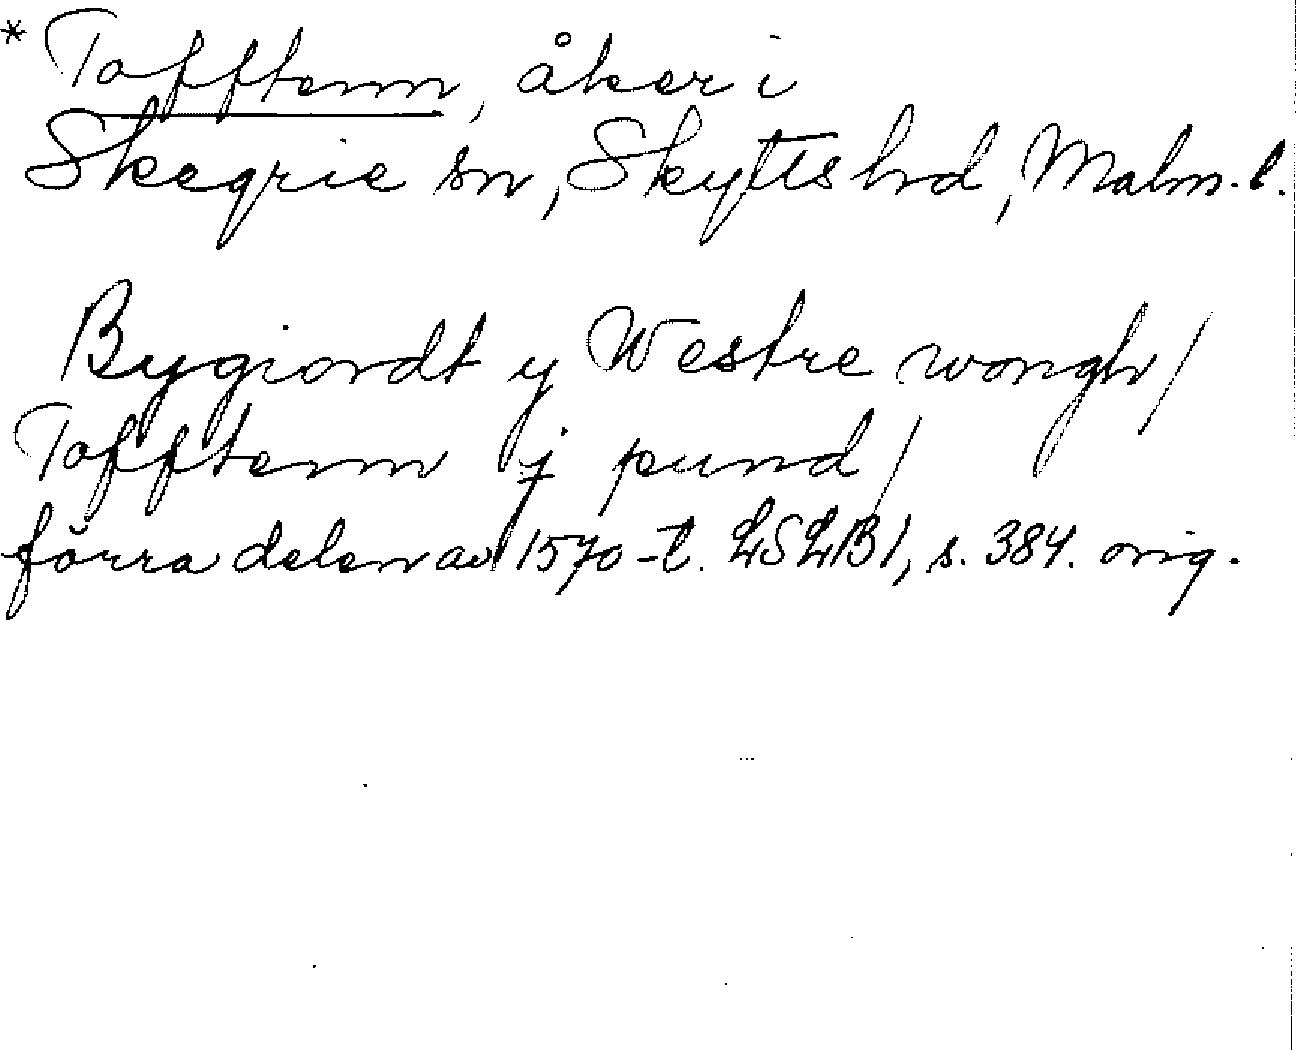 * Tofftenn, åker i
Skegrie sn, Skytts hd, Malm. l.
Bygiordt y Westre wongh/
Tofftenn ɉ pund/
förra delen av 1570-t. LSLB 1, s. 384. orig.